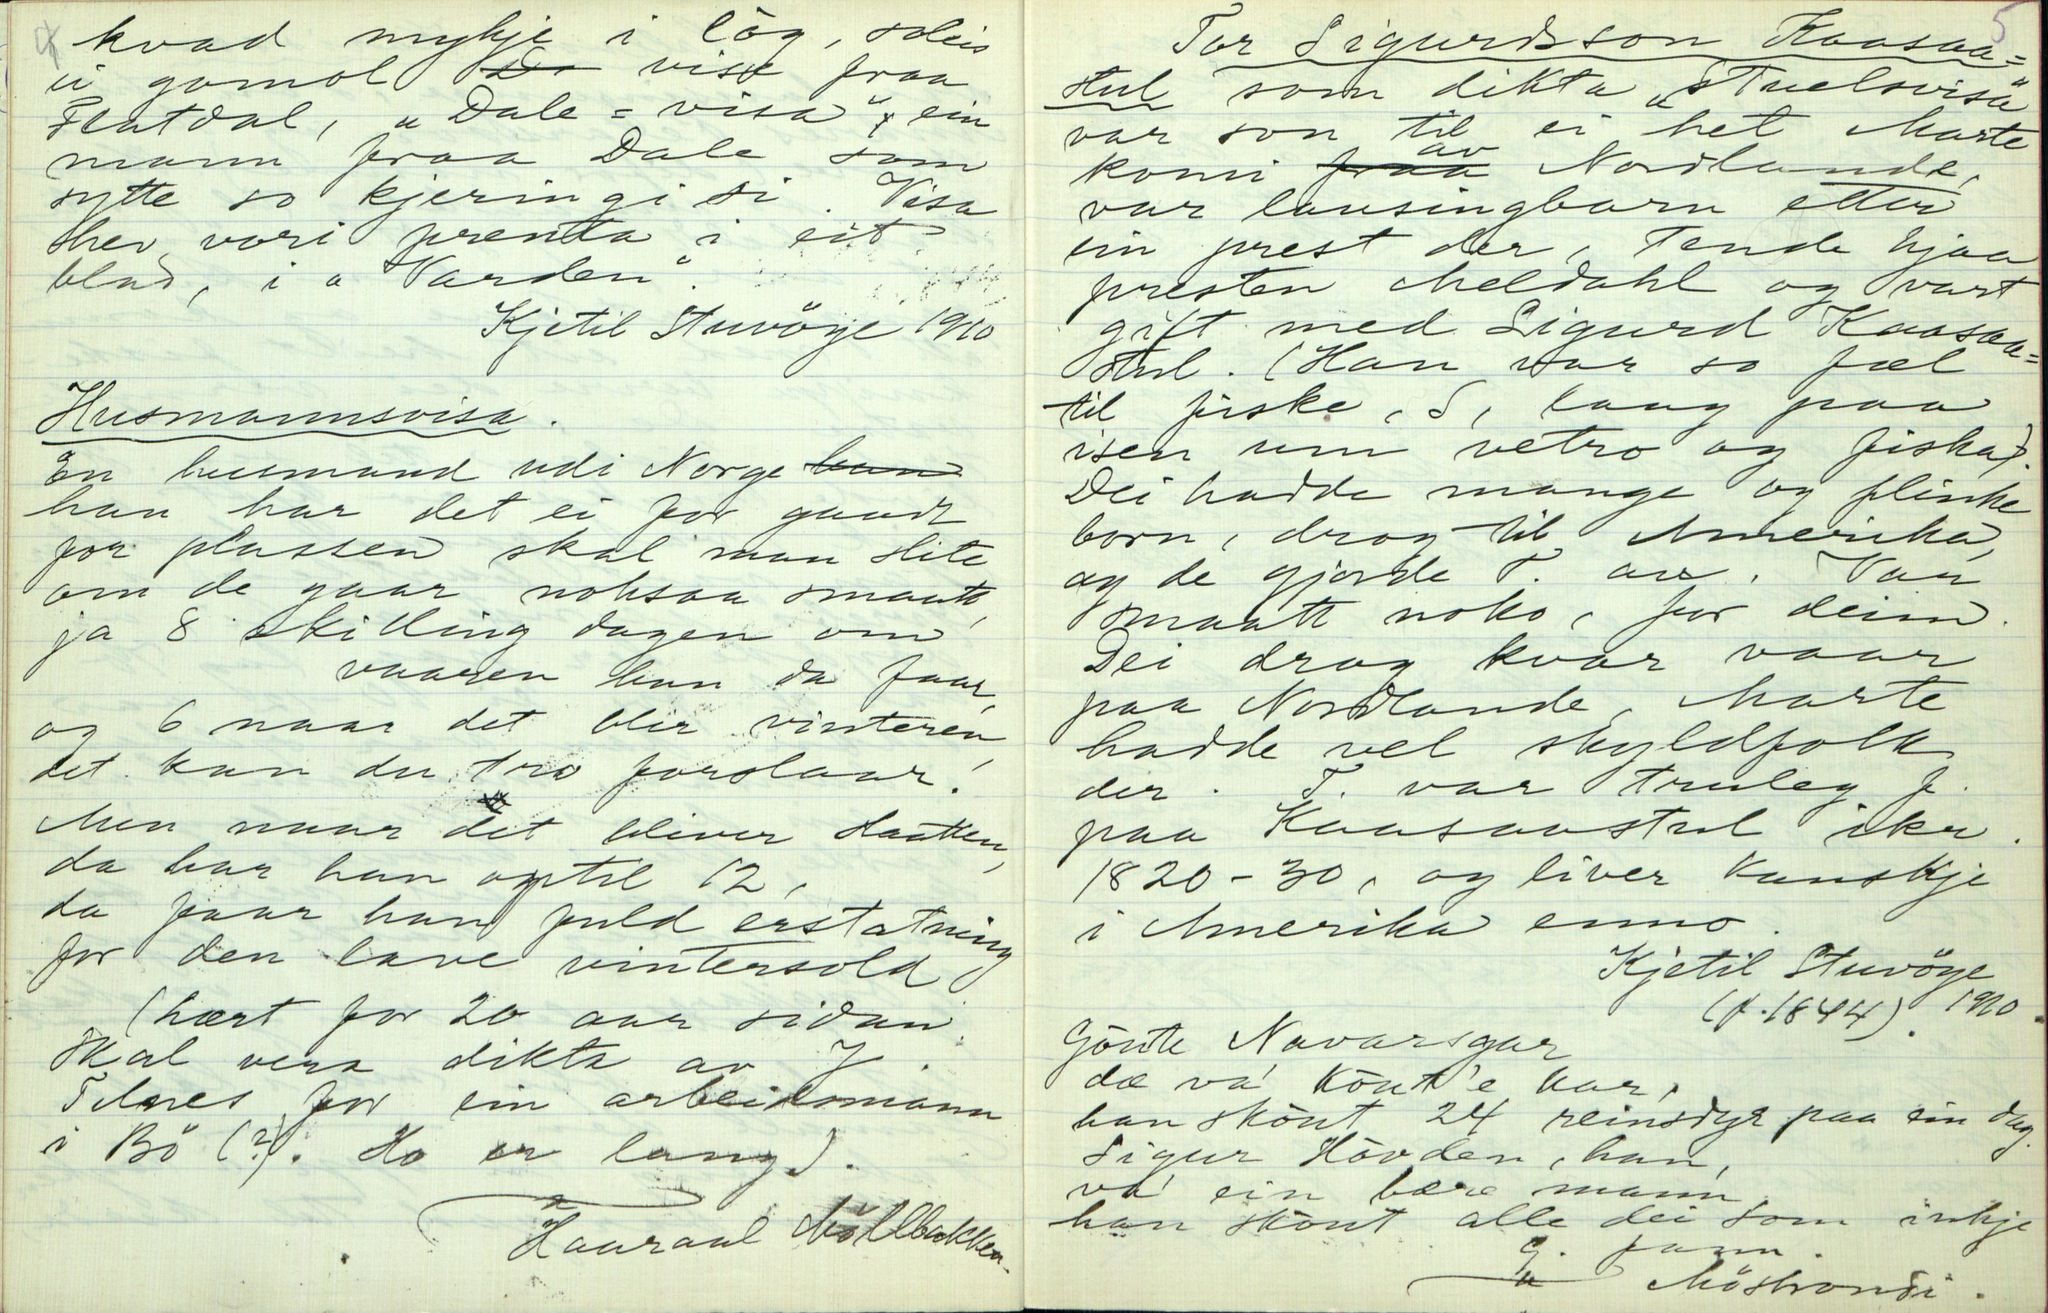 kvad mykje i lög, soleis
ei gomol visa fraa
Flatdal, „Dale=visa", ein
mann fraa Dale som
sytte so kjeringi si. Visa
hev vori prenta i eit
blad, i „Varden".
Kjetil Stuvöye 1910
Husmannsvisa.
En husmand udi Norge han
han har det ei for godt
for plassen skal man slite
om de gaar noksaa smaatt,
ja 8 skilling dagen om
vaaren han da faar,
og 6 naar det blir vinteren,
det kan du tro forslaar!
Men naar det bliver slaatten,
da har han optil 12,
da faar han fuld erstatning
for den lave vintersold
(hært for 20 aar sidan.
Skal vera dikta av J.
Tilnes for ein arbeidsmann
i Bö (?). Ho er lang).
Haaraal Möllbakken.
5
Tor Sigurdsson Kaasaa=
stul som dikta „Stuelsvisa"
var son til ei het Marte
komi fraa av Nordlande,
var lausingbarn etter
ein prest der, tende hjaa
presten Meldahl og vart
gift med Sigurd Kaasaa=
stul. (Han var so fæl
til fiske, S, laag paa
isen um vetro og fiska).
Dei hadde mange og flinke
born, drog til Amerika,
og de gjorde T. au. Van
smaatt noko, for deim.
Dei drog kvar vaar
paa Nordlande, Marte
hadde vel skyldfolk
der. T. var truleg f.
paa Kaasaastul ikr.
1820-30, og liver kanskje
i Amerika enno.
Kjetil Stuvöye
(f. 1844). 1910.
Gönte Navarsgar
dæ va' könt'e kar,
han sköut 24 reinsdyr paa ein dag.
Sigur Hövden, han,
va' ein bære mann,
han sköut alle dei som inkje
fann.
Möstrondi.